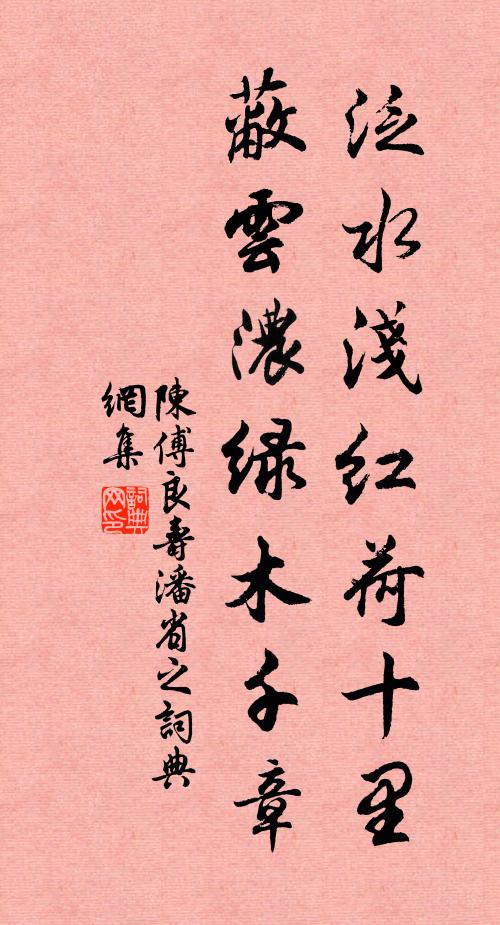 泛水淺紅荷十里
蔽雲濃緑木千章
陳傅良壽潘省之詞典
網集
詞典网印